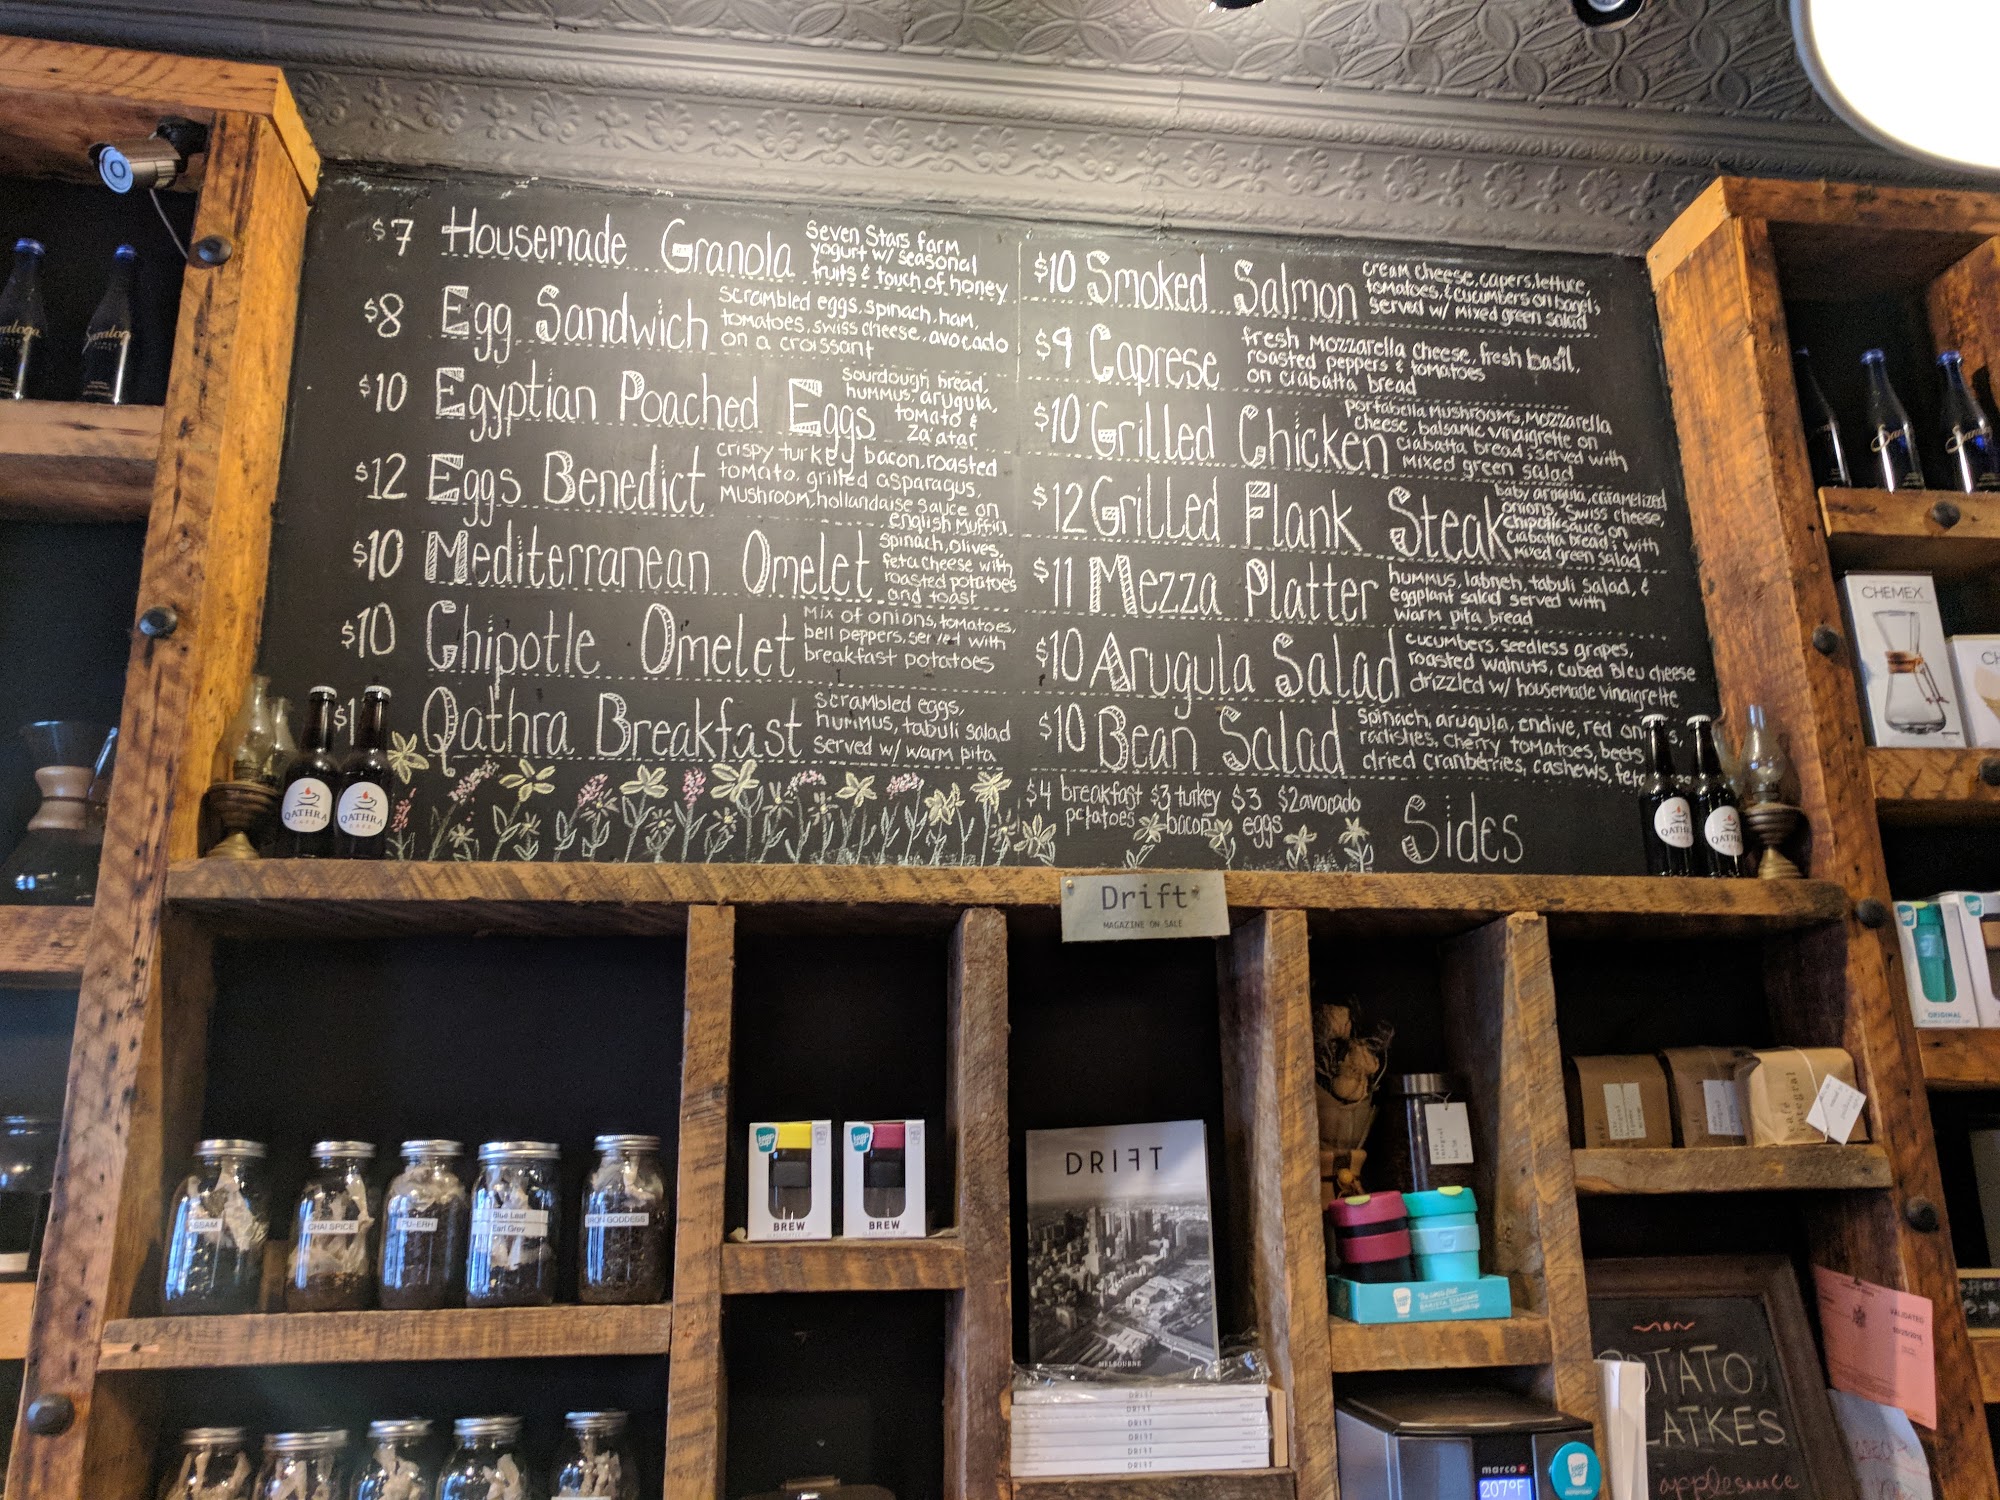 $7 Housemade Granola
Seven Stars farm
yogurt w/ seasonal
fruits & touch of honey
$8 Egg Sandwich
scrambled eggs, spinach, ham,
tomatoes, swiss cheese, avocado
on a croissant
$10 Egyptian Poached Eggs
sourdough bread,
hummus, arugula,
tomato &
za'atar
$12 Eggs Benedict
crispy turkey bacon, roasted
tomato, grilled asparagus,
mushroom, hollandaise sauce on
english muffin
$10 Mediterranean Omelet
spinach, olives,
feta cheese with
roasted potatoes
and toast
$10 Chipotle Omelet
Mix of onions, tomatoes,
bell peppers, served with
breakfast potatoes
Qathra Breakfast
scrambled eggs,
hummus, tabuli salad
served w/ warm pita
$10 Smoked Salmon
cream cheese, capers, lettuce,
tomatoes, & cucumbers on bagel;
served w/ mixed green salad
$9 Caprese
fresh mozzarella cheese, fresh basil,
roasted peppers & tomatoes
on ciabatta bread
$10 Grilled Chicken
portabella mushrooms, mozzarella
cheese, balsamic vinaigrette on
ciabatta bread; served with
mixed green salad
$12 Grilled Flank Steak
baby arugula, caramelized
onions, swiss cheese,
chipotle sauce on
ciabatta bread; with
mixed green salad
$11 Mezza Platter
hummus, labneh, tabuli salad, &
eggplant salad served with
warm pita bread
$10 Arugula Salad
cucumbers, seedless grapes,
roasted walnuts, cubed bleu cheese
drizzled w/ housemade vinaigrette
$10 Bean Salad
spinach, arugula, endive, red
radishes, cherry tomatoes, beets
dried cranberries, cashews,
$4 breakfast potatoes
$3 turkey bacon
$3 eggs
$2 avocado
Sides
QATHRA
CAFÉ
QATHRA
CAFÉ
Drift
MAGAZINE ON SALE
CHEMEX
ORIGINAL
ASSAM
CHAI SPICE
PU-ERH
Blue Leaf
Earl Grey
IRON GODDESS
keep cup
BREW
keep cup
BREW
DRIFT
MELBOURNE
DRIFT
DRIFT
DRIFT
DRIFT
DRIFT
DRIFT
café
integral
VALIDATED
marco
207°F
LATKES
applesauce